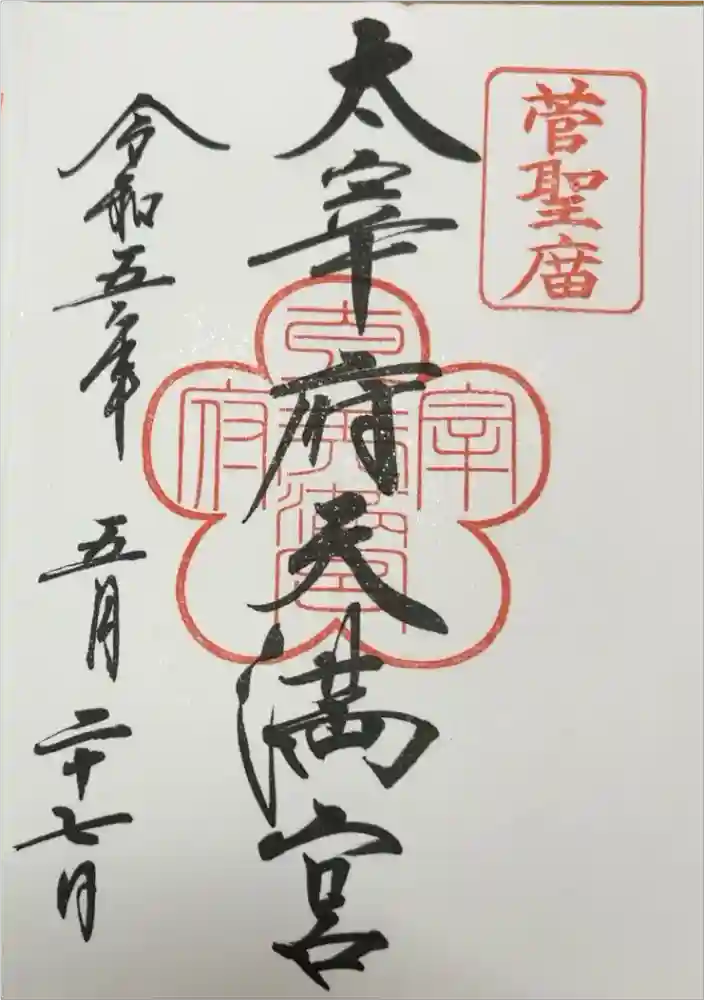 菅聖庿
太宰府天満宮
太宰府天満宮
令和五年 五月 二十七日